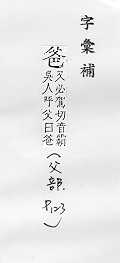 字彙補
爸
又必駕切音霸
吳人呼父曰爸
(父部 P.123)